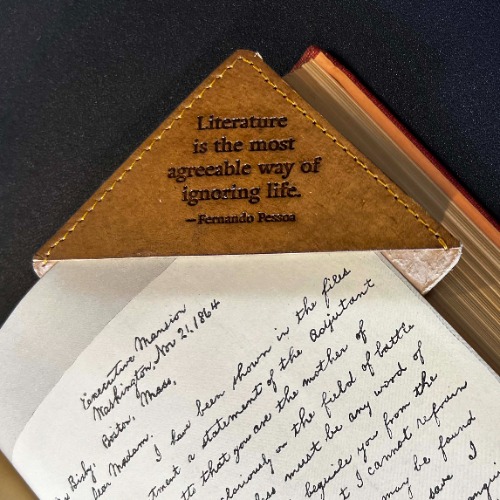 Literature
is the most
agreeable way of
ignoring life.
—Fernando Pessoa
Executive Mansion
Washington, Nov 21, 1864
Boston, Mass,
Bixby,
Dear Madam.
I have been shown in the files
statement of the Adjutant
that you are the mother of
on the field of battle
must be any word of
beguile you from the
I cannot refrain
may be found
save